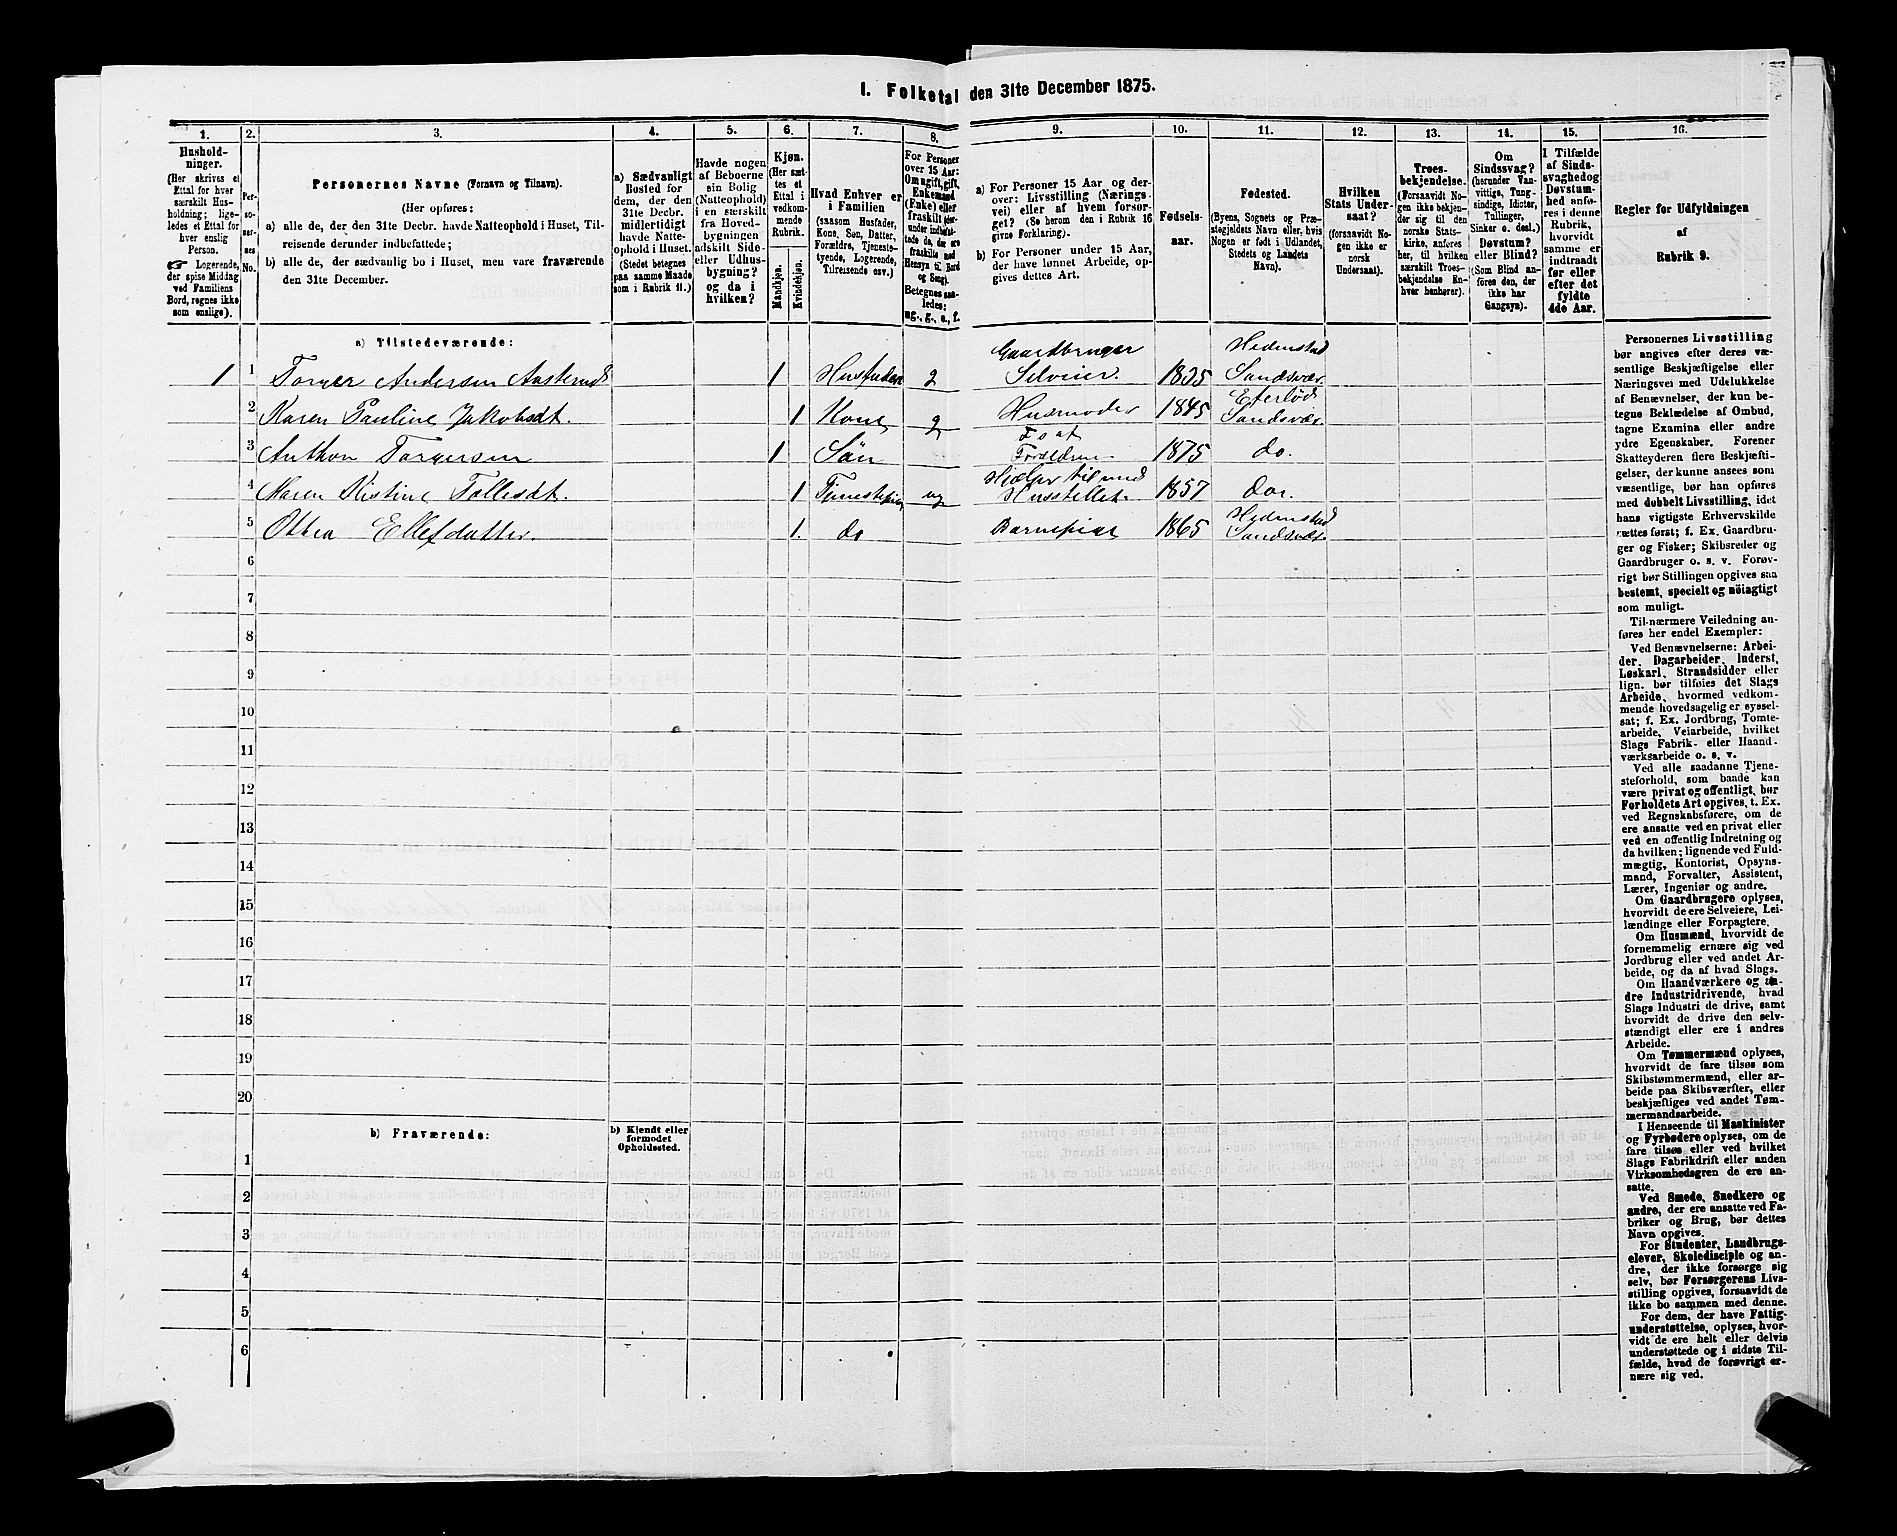 I. Folketal den 31te December 1875.
1. 2. 3. 4. 5. 6. 7. 8. 9. 10. 11. 12. 13. 14. 15. 16.
Hushold-
ninger.
(Her skrives et
Ettal for hver
særskilt Hus-
holdning; lige-
ledes et Ettal for
hver enslig
Person.
Logerende,
der spise Middag
ved Familiens
Bord, regnes ikke
som enslige).
Per-
so-
ner-
nes
No.
Personernes Navne (Fornavn og Tilnavn).
(Her opføres:
a) alle de, der den 31te Decbr. havde Natteophold i Huset, Til-
reisende derunder indbefattede;
b) alle de, der sædvanlig bo i Huset, men vare fraværende
den 31te December.
a) Sædvanligt
Bosted for
dem, der den
31te Decbr.
midlertidigt
havde Natte-
ophold i Huset.
(Stedet betegnes
paa samme Maade
som i Rubrik 11.)
Havde nogen
af Beboerne
sin Bolig
(Natteophold)
i en særskilt
fra Hoved-
bygningen
adskilt Side-
eller Udhus-
bygning?
og da i
hvilken?
Kjøn.
(Her sæt-
tes et
Ettal i
vedkom-
mende
Rubrik.
Mandkjøn.
Kvindekjøn.
Hvad Enhver er
i Familien
(saasom Husfader,
Kone, Søn, Datter,
Forældre, Tjeneste-
tyende, Logerende,
Tilreisende osv.)
For Personer
over 15 Aar:
Om ugift, gift,
Enkemand
(Enke) eller
fraskilt (der-
under indbefat-
tede de, der ere
fraskilte med
Hensyn til Bord
og Seng).
Betegnes saa-
ledes:
ug., g., e., f.
a) For Personer 15 Aar og der-
over: Livsstilling (Nærings-
vei) eller af hvem forsør-
get? (Se herom den i Rubrik 16
givne Forklaring).
b) For Personer under 15 Aar,
der have lønnet Arbeide, op-
gives dettes Art.
Fødsels-
aar.
Fødested.
(Byens, Sognets og Præ-
stegjeldets Navn eller, hvis
Nogen er født i Udlandet,
Stedets og Landets
Navn).
Hvilken
Stats Under-
saat?
(forsaavidt No-
gen ikke er
norsk
Undersaat).
Troes-
bekjendelse.
(Forsaavidt No-
gen ikke bekjen-
der sig til den
norske Stats-
kirke, anføres
her, til hvilken
særskilt Troes-
bekjendelse En-
hver henhører).
Om
Sindssvag?
(herunder Van-
vittige, Tung-
sindige, Idioter,
Tullinger,
Sinker o. desl.)
Døvstum?
eller Blind?
(Som Blind an-
føres den, der
ikke har
Gangsyn).
I Tilfælde
af Sinds-
svaghed og
Døvstum-
hed anfø-
res i denne
Rubrik,
hvorvidt
samme er
indtraadt
før eller
efter det
fyldte
4de Aar.
Regler for Udfyldningen
af
Rubrik 9.
a) Tilstedeværende:
1 1 Torger Andersen 1 Husfader g Gaardbruger Selveier. 1835 Hedenstad Sandsvær.
2 Karen Pauline Jakobsdt. 1 Kone g Husmoder 1845 Efterlød Sandsvær.
3 Anthon Torgersen 1 Søn 1875 do.
4 Maren Kistine 1 ug Husstellet. 1857 do.
5 Ellefdatter. 1. do Barnepige 1865 Hedenstad Sandsvær.
6
7
8
9
10
11
12
13
14
15
16
17
18
19
20
b) Fraværende:
b) Kjendt eller
formodet
Opholdssted.
1
2
3
4
5
6
Personernes Livsstilling
bør angives efter deres væ-
sentlige Beskjæftigelse eller
Næringsvei med Udelukkelse
af Benævnelser, der kun be-
tegne Beklædelse af Ombud,
tagne Examina eller andre
ydre Egenskaber. Forener
Skatteyderen flere Beskjæfti-
gelser, der kunne ansees som
væsentlige, bør han opføres
med dobbelt Livsstilling, idet
hans vigtigste Erhvervskilde
sættes først; f. Ex. Gaardbru-
ger og Fisker; Skibsreder og
Gaardbruger o. s. v. Forøv-
rigt bør Stillingen opgives saa
bestemt, specielt og nöiagtigt
som muligt.
Til nærmere Veiledning an-
føres her endel Exempler:
Ved Benævnelserne: Arbei-
der, Dagarbeider, Inderst,
Løskarl, Strandsidder eller
lign. bør tilføies det Slags
Arbeide, hvormed vedkom-
mende hovedsagelig er syssel-
sat; f. Ex. Jordbrug, Tomte-
arbeide, Veiarbeide, hvilket
Slags Fabrik- eller Haand-
værksarbeide o. s. v.
Ved alle saadanne Tjene-
steforhold, som baade kan
være privat og offentligt, bør
Forholdets Art opgives, t. Ex.
ved Regnskabsførere, om de
ere ansatte ved en privat eller
ved en offentlig Indretning og
da hvilken; lignende ved Fuld-
mægtig, Kontorist, Opsyns-
mand, Forvalter, Assistent,
Lærer, Ingeniør og andre.
Om Gaardbrugere oplyses,
hvorvidt de ere Selveiere, Lei-
lændinge eller Forpagtere.
Om Husmænd, hvorvidt de
fornemmelig ernære sig ved
Jordbrug eller ved andet Ar-
beide, og da af hvad Slags.
Om Haandværkere og an-
dre Industridrivende, hvad
Slags Industri de drive, samt
hvorvidt de drive den selv-
stændigt eller ere i andres
Arbeide.
Om Tømmermænd oplyses,
hvorvidt de fare tilsøs som
Skibstømmermænd, eller ar-
beide paa Skibsværfter, eller
beskjæftiges ved andet Tøm-
mermandsarbeide.
I Henseende til Maskinister
og Fyrbødere oplyses, om de
fare tilsøs eller ved hvilket
Slags Fabrikdrift eller anden
Virksomhedsgren de ere an-
satte.
Ved Smede, Snedkere og
andre, der ere ansatte ved Fa-
briker og Brug, bør dettes
Navn opgives.
For Studenter, Landbrugs-
elever, Skoledisciple og an-
dre, der ikke forsørge sig
selv, bør Forsørgerens Livs-
stilling opgives, forsaavidt de
ikke bo sammen med denne.
For dem, der have Fattig-
understøttelse, oplyses, hvor-
vidt de ere helt eller delvis
understøttede og i sidste Til-
fælde, hvad de forøvrigt er-
nære sig ved.